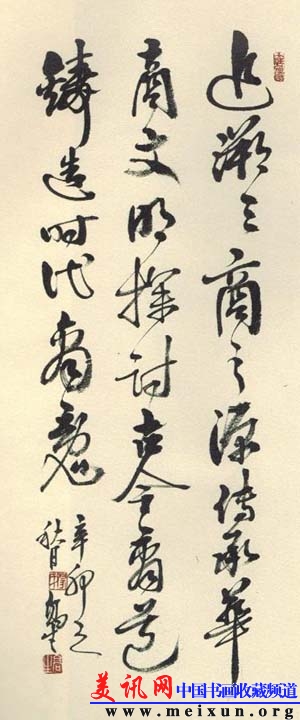 追溯三商之源传承华
商文明探讨古今商道
铸造时代商魂
辛卯之
秋月
美讯网 中国书画收藏频道
www.meixun.org